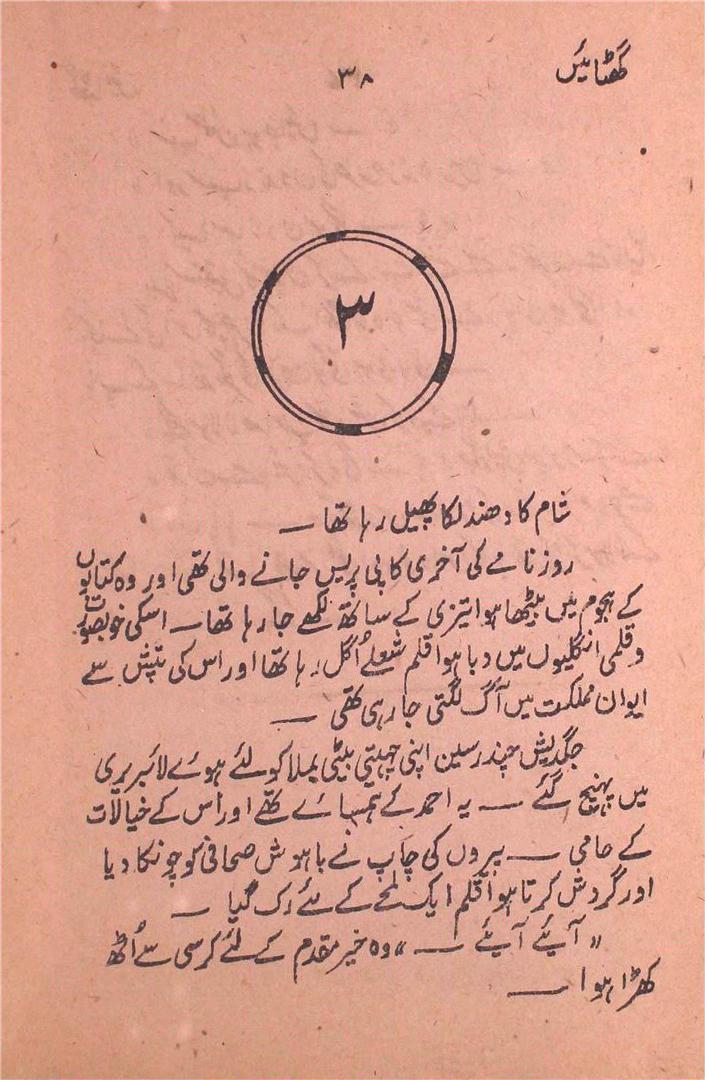 گھٹائیں
۳۸
۳
شام کا دھندلکا پھیل رہا تھا ـــ
روزنامے کی آخری کاپی پریس جانے والی تھی اور وہ کتابوں
کے ہجوم میں بیٹھا ہوا تیزی کے ساتھ لکھے جا رہا تھا ـــ اسکی خوبصورت
و قلمی انگلیوں میں دبا ہوا قلم شعلے اُگل رہا تھا اور اس کی تپش سے
ایوان مملکت میں آگ لگتی جا رہی تھی ـــ
جگدیش چندر سین اپنی چہیتی بیٹی بملا کو لئے ہوئے لائبریری
میں پہنچ گئے ـــ یہ احمد کے ہمسائے تھے اور اس کے خیالات
کے حامی ـــ پیروں کی چاپ نے باہوش صحافی کو چونکا دیا
اور گردش کرتا ہوا قلم ایک لمحے کے لئے رک گیا ـــ
"آیئے آیئے ـــ" وہ خیر مقدم کے لئے کرسی سے اُٹھ
کھڑا ہوا ـــ